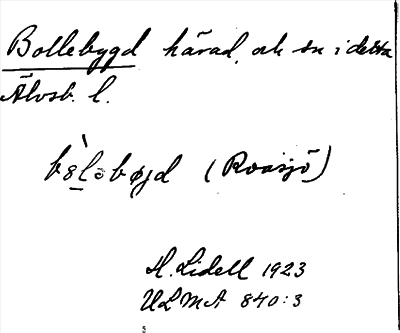 Bollebygd härad, och sn i detta
Älvsb. l.
bòləbygd (Roasjö)
H. Lidell 1923
ULMA 840:3